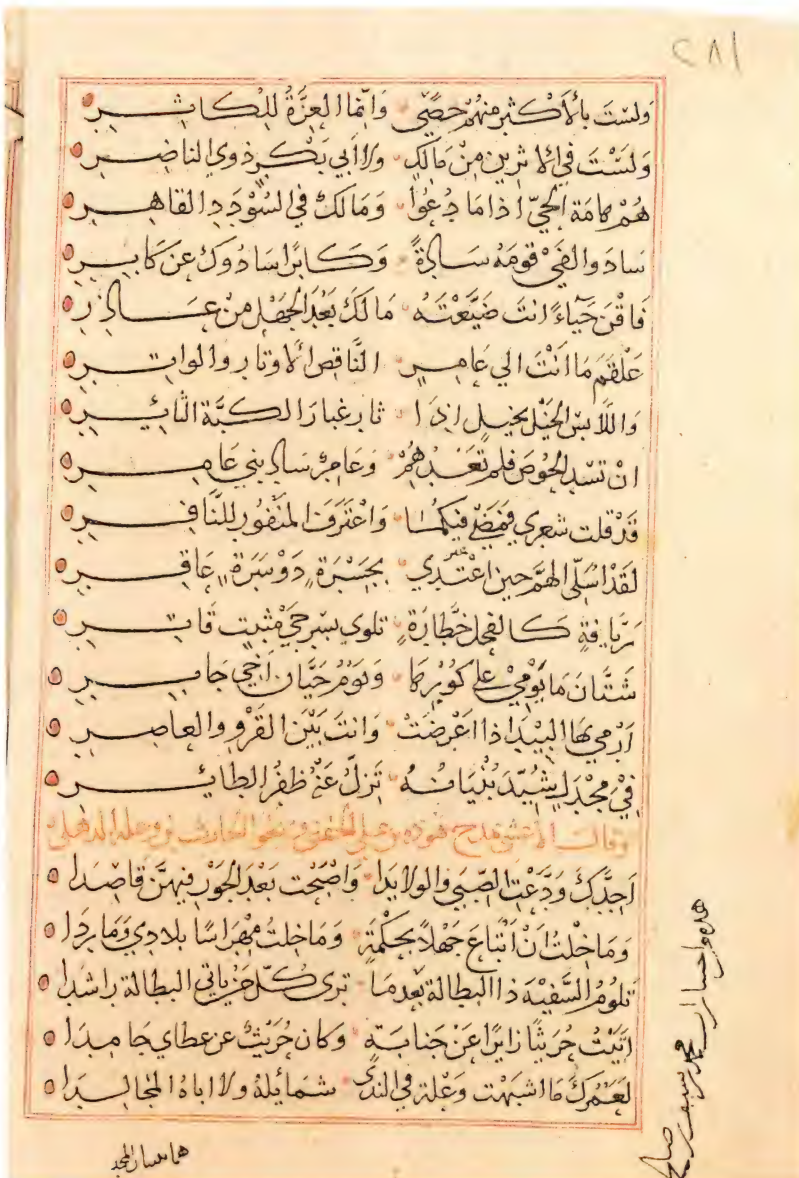 ٢٨١
وَلسْتَ بالأكثرِ منهُمْ حصًى وَانّما العِزَّةُ للْكاثِرِ
وَلَسْتَ في الاثرين منْ مَالكٍ ولا أبي بَكْرٍ ذوي الناضِرِ
هُمْ هامَة الحيّ اذا ما دُعُوا وَمَالكٌ في السُّوْدَدِ القاهِرِ
سادَ والفَيْ قومَهُ سَادَةً وَكَابرًا سَادُوكَ عن كَابِرِ
فَاقْنَ حَيَاءً انتَ ضَيَّعْتَهُ مَالكَ بَعْدَ الجَهْلِ منْ عَاذِرِ
عَلْقَمَ مَا انْتَ الي عَامِرٍ النَّاقِضِ الاوتارِ والواتِرِ
وَاللَّابس الخَيْل بخيلٍ اذَا ثارَ غبارُ الكبَّة الثائِرِ
انْ تسُد الحُوصَ فلم تَعْدُهُمْ وَعَامرٌ سَادَ بني عَامِرِ
قَدْ قلت شعري فمَضَي فيكمَا وَاعْتَرَفَ المنْفُورُ للنَّافِرِ
لَقَدْ اُسَلّى الهمَّ حين اعْتَدِي بجَسْرَةٍ دَوْسَرَةٍ عَاقِرِ
زيَّافةٍ كالفحل خطَّارَةٍ تلوي بسرحيْ مثبيت قَاتِرِ
شَتَّان مَا يَوْمي علي كُوْرِهَا وَيَوْمُ حَيَّان اخي جَابِرِ
اَرْمي بهَا البيْدَا اذا اعْرضَتْ وَانتَ بَيْنَ القَرْوِ والعاصِرِ
فِيْ مجْدَلٍ شُيِّدَ بُنْيَانُهُ تَزلُّ عَنْهُ ظفُرُ الطائِرِ
وقال الاعشى يمدح هوذه بن علي الحنفي ويهجو الحارث بن وعله الذهلي
اَجِدَّكَ وَدَّعْتَ الصِّبَى والولايدا وَاصْبَحْت بَعْدَ الجَوْرِ فيهنَّ قاصِدا
وَمَا خلْتُ اَنْ اَبْتَاعَ جَهْلاً بحكْمَةٍ وَمَا خلتُ مِهْرَاسًا بلادي وَمَارِدَا
تلُومُ السَّفِيْهَ ذا البطالة بَعْدَمَا تري كُلّ مَا ياتي البطالة راشدا
اتَيْتُ حُرَيْثًا زايرًا عَنْ جَنابَةٍ وَكان حُرَيْثٌ عن عطاي جَامِدَا
لعَمْرُكَ مَا اشبَهْت وَعْلة في الندَى شمَائِلَهُ ولا اباهُ المُجالِدَا